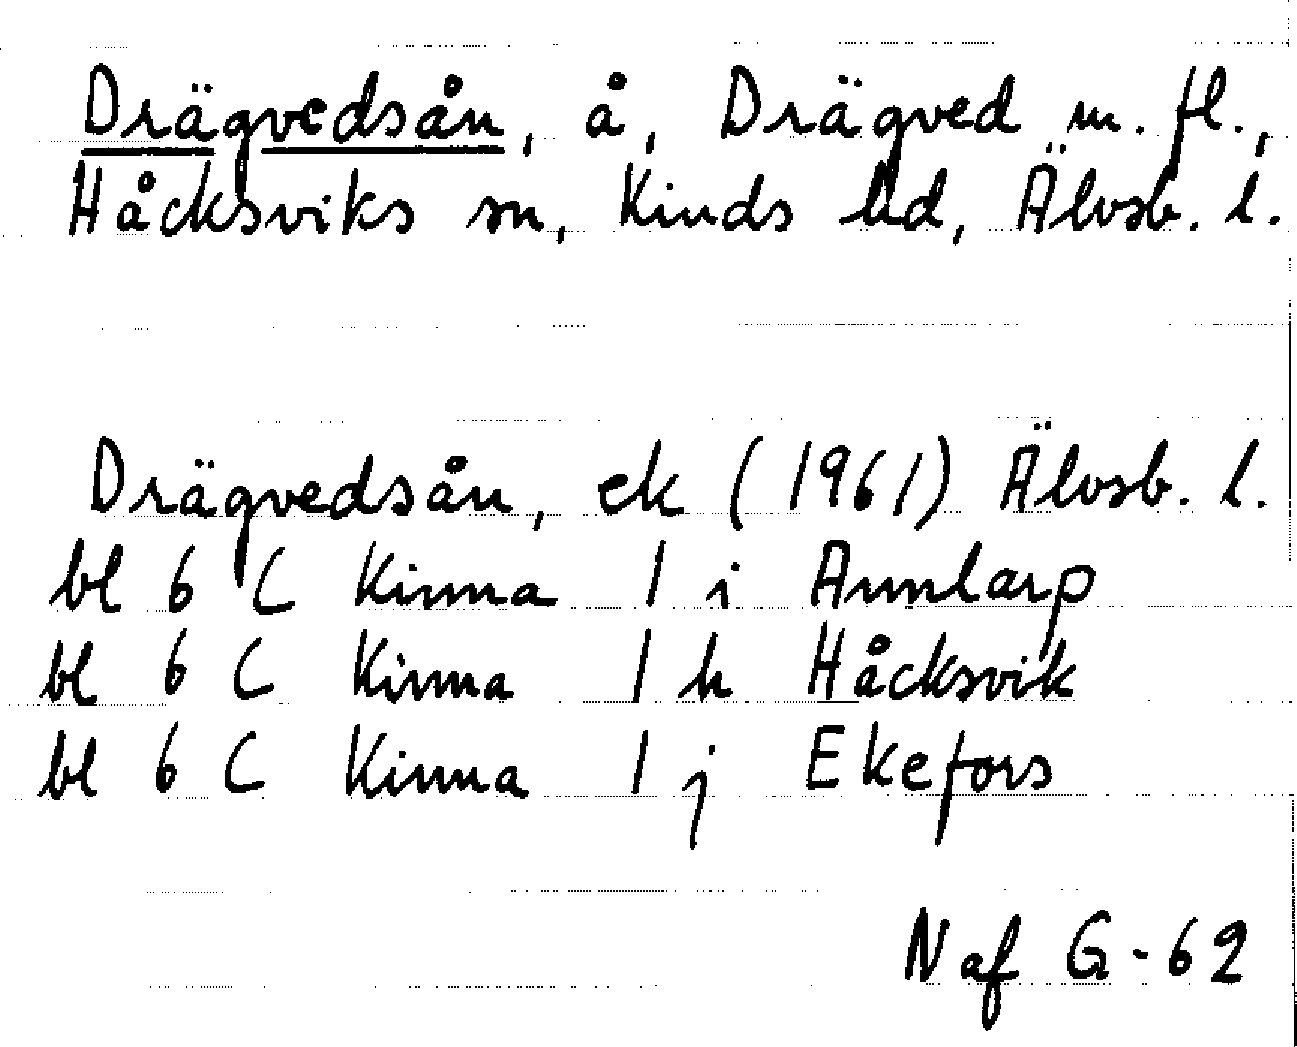 Drägvedsån, å, Drägved m. fl.,
Håcksviks sn, Kinds hd, Älvsb. l.
Drägvedsån, ek (1961) Älvsb. l.
bl 6 C Kinna 1 i Arnnlarp
bl 6 C Kinna 1 h Håcksvik
bl 6 C Kinna 1 j Ekefors
N af G-62